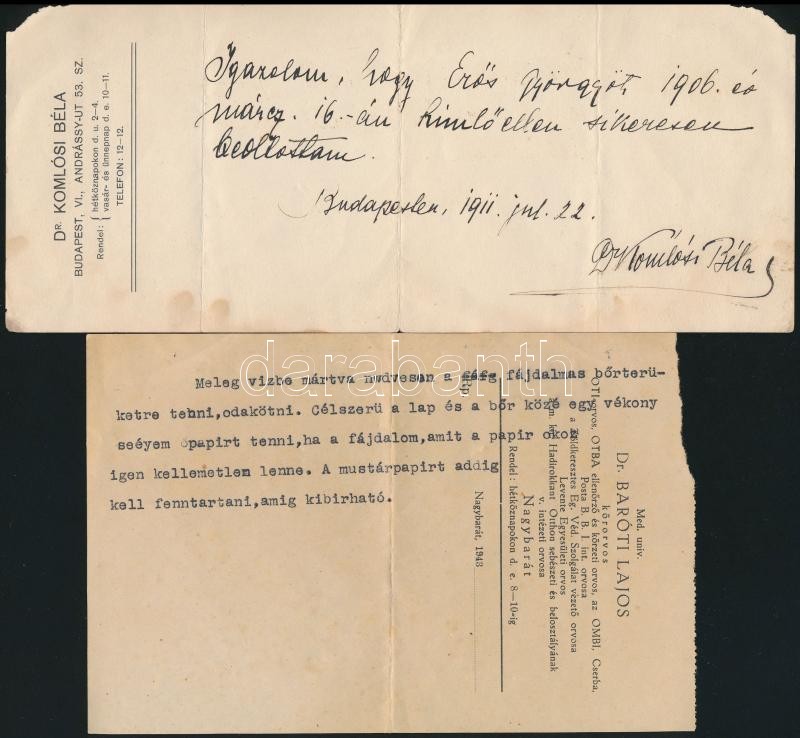 Dr. KOMLÓSI BÉLA
BUDAPEST, VI., ANDRÁSSY-UT 53. SZ.
Rendel: { hétköznapokon d. u. 2—4.
vasár- és ünnepnap d. e. 10—11.
TELEFON: 12-12.
Igazolom, hogy Erős Györgyöt 1906. év
márcz. 16.-án himlőellen sikeresen
beoltottam.
Budapesten, 1911. jul. 22.
Dr Komlósi Béla
darabanth
Meleg vizbe mártva nedvesen a fáfg fájdalmas bőrterü-
ketre tenni,odakötni. Célszerü a lap és a bőr közé egy vékony
seéyem papirt tenni,ha a fájdalom,amit a papir okoz
igen kellemetlen lenne. A mustárpapirt addig
kell fenntartani,amig kibirható.
Med. univ.
Dr. BARÓTI LAJOS
körorvos
OTI orvos, OTBA ellenőrző és körzeti orvos, az OMBI, Cserba,
Posta B. B. I. int. orvosa
a Zöldkeresztes Eg. Véd. Szolgálat vezető orvosa
Levente Egyesületi orvos
kir. Hadirokkant Otthon sebészeti és belosztályának
v. intézeti orvosa
Nagybarát
Rendel: hétköznapokon d. e. 8—10-ig
Rp.
Nagybarát, 1943